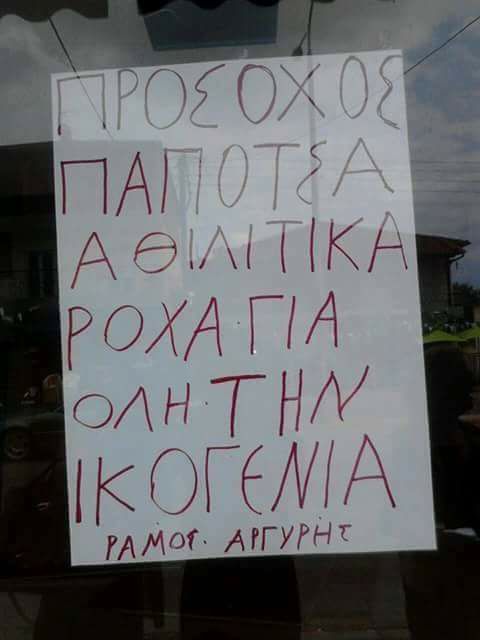 ΠΡΟΣΟΧΟΣ
ΠΑΠΟΤΣΑ
ΑΘΙΛΙΤΙΚΑ
ΡΟΧΑ.ΓΙΑ
ΟΛΗ.ΤΗΝ
ΙΚΟΓΕΝΙΑ
ΡΑΜΟΣ. ΑΡΓΥΡΗΣ